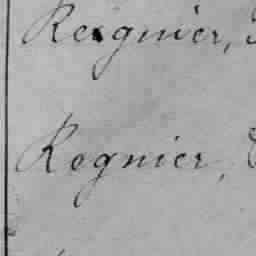 Reignier,
Rognier,